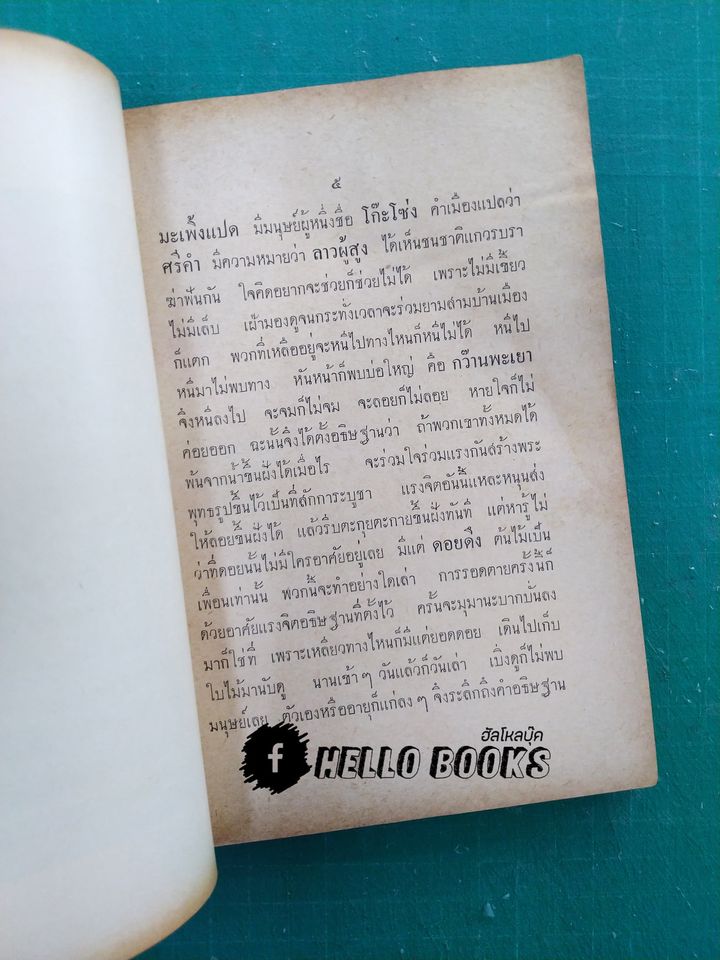 ๕
มะเพิ้งแปด มีมนุษย์ผู้หนึ่งชื่อ โก๊ะโซ่ง คำเมืองแปลว่า
ศรีคำ มีความหมายว่า ลาวผู้สูง ได้เห็นชนชาติแกวรบรา
ฆ่าฟันกัน ใจคิดอยากจะช่วยก็ช่วยไม่ได้ เพราะไม่มีเขี้ยว
ไม่มีเล็บ เฝ้ามองดูจนกระทั่งเวลาจะร่วมยามสามบ้านเมือง
ก็แตก พวกที่เหลืออยู่จะหนีไปทางไหนก็หนีไม่ได้ หนีไป
หนีมาไม่พบทาง หันหน้าก็พบบ่อใหญ่ คือ กว๊านพะเยา
จึงหนีลงไป จะจมก็ไม่จม จะลอยก็ไม่ลอย หายใจก็ไม่
ค่อยออก ฉะนั้นจึงได้ตั้งอธิษฐานว่า ถ้าพวกเขาทั้งหมดได้
พ้นจากน้ำขึ้นฝั่งได้เมื่อไร จะร่วมใจร่วมแรงกันสร้างพระ
พุทธรูปขึ้นไว้เป็นที่สักการะบูชา แรงจิตอันนี้แหละหนุนส่ง
ให้ลอยขึ้นฝั่งได้ แล้วรีบตะกุยตะกายขึ้นฝั่งทันที แต่หารู้ไม่
ว่าที่ดอยนั้นไม่มีใครอาศัยอยู่เลย มีแต่ ดอยดัง ต้นไม้เป็น
เพื่อนเท่านั้น พวกนี้จะทำอย่างใดเล่า การรอดตายครั้งนี้ก็
ด้วยอาศัยแรงจิตอธิษฐานที่ตั้งไว้ ครั้นจะมุมานะบากบั่นลง
มาก็ใช่ที่ เพราะเหลียวทางไหนก็มีแต่ยอดดอย เดินไปเก็บ
ใบไม้มานับดู นานเข้า ๆ วันแล้วก็วันเล่า เบิ่งดูก็ไม่พบ
มนุษย์เลย ตัวเองหรืออายุก็แก่ลง ๆ จึงระลึกถึงคำอธิษฐาน
ฮัลโหลบุ๊ค
f HELLO BOOKS